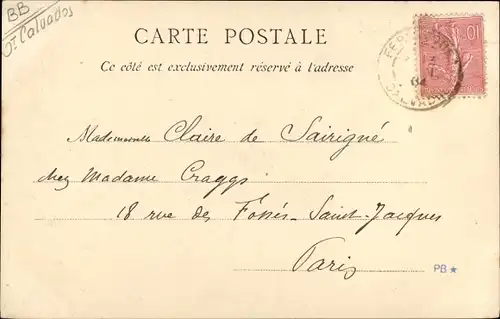 BB
Dt Calvados
CARTE POSTALE
Ce côté est exclusivement réservé à l'adresse
10
CALVADOS
Mademoiselle Claire de Sairigné
chez Madame Craggs
18 rue des Fossés-Saint-Jacques
Paris
PB